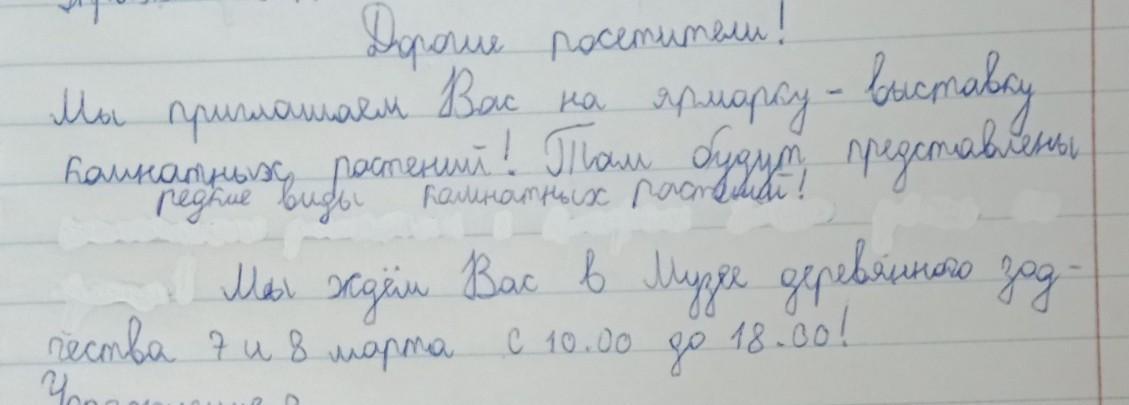 Дорогие посетители!
Мы приглашаем Вас на ярмарку - выставку
комнатных растений! Там будут представлены
редкие виды комнатных растений!
Мы ждём Вас в Музее деревянного зод-
чества 7 и 8 марта с 10.00 до 18.00!